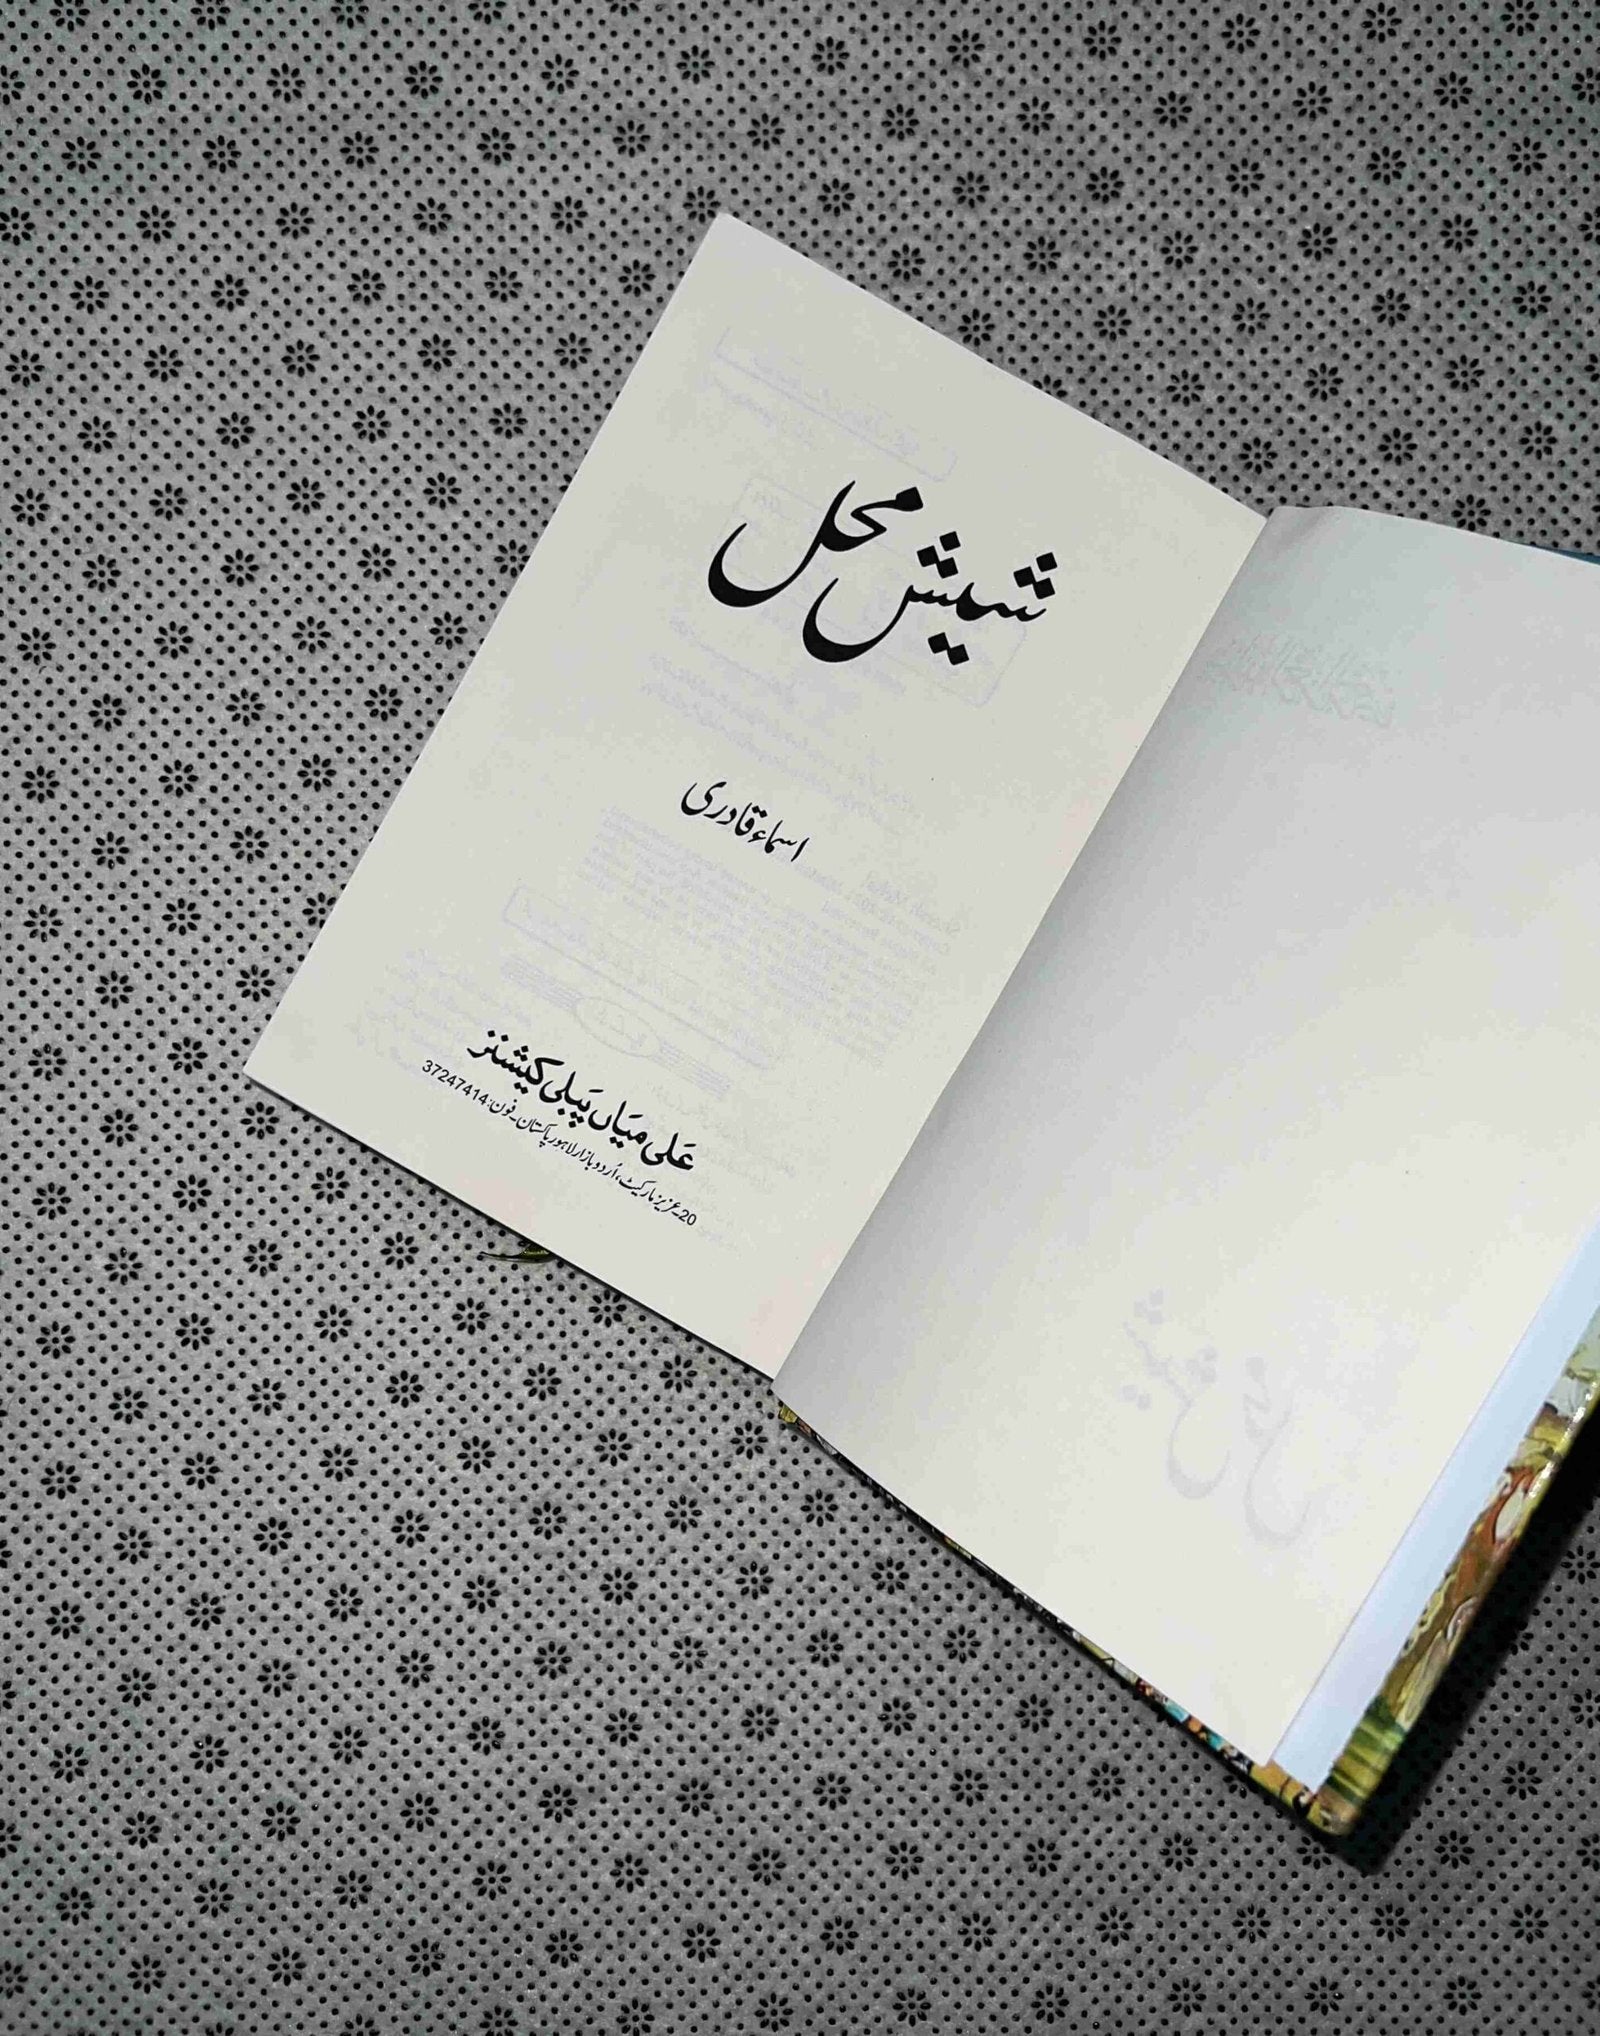 شیش محل
اسماء قادری
علی میاں پبلی کیشنز
20۔ عزیز مارکیٹ، اُردو بازار لاہور پاکستان۔ فون: 37247414